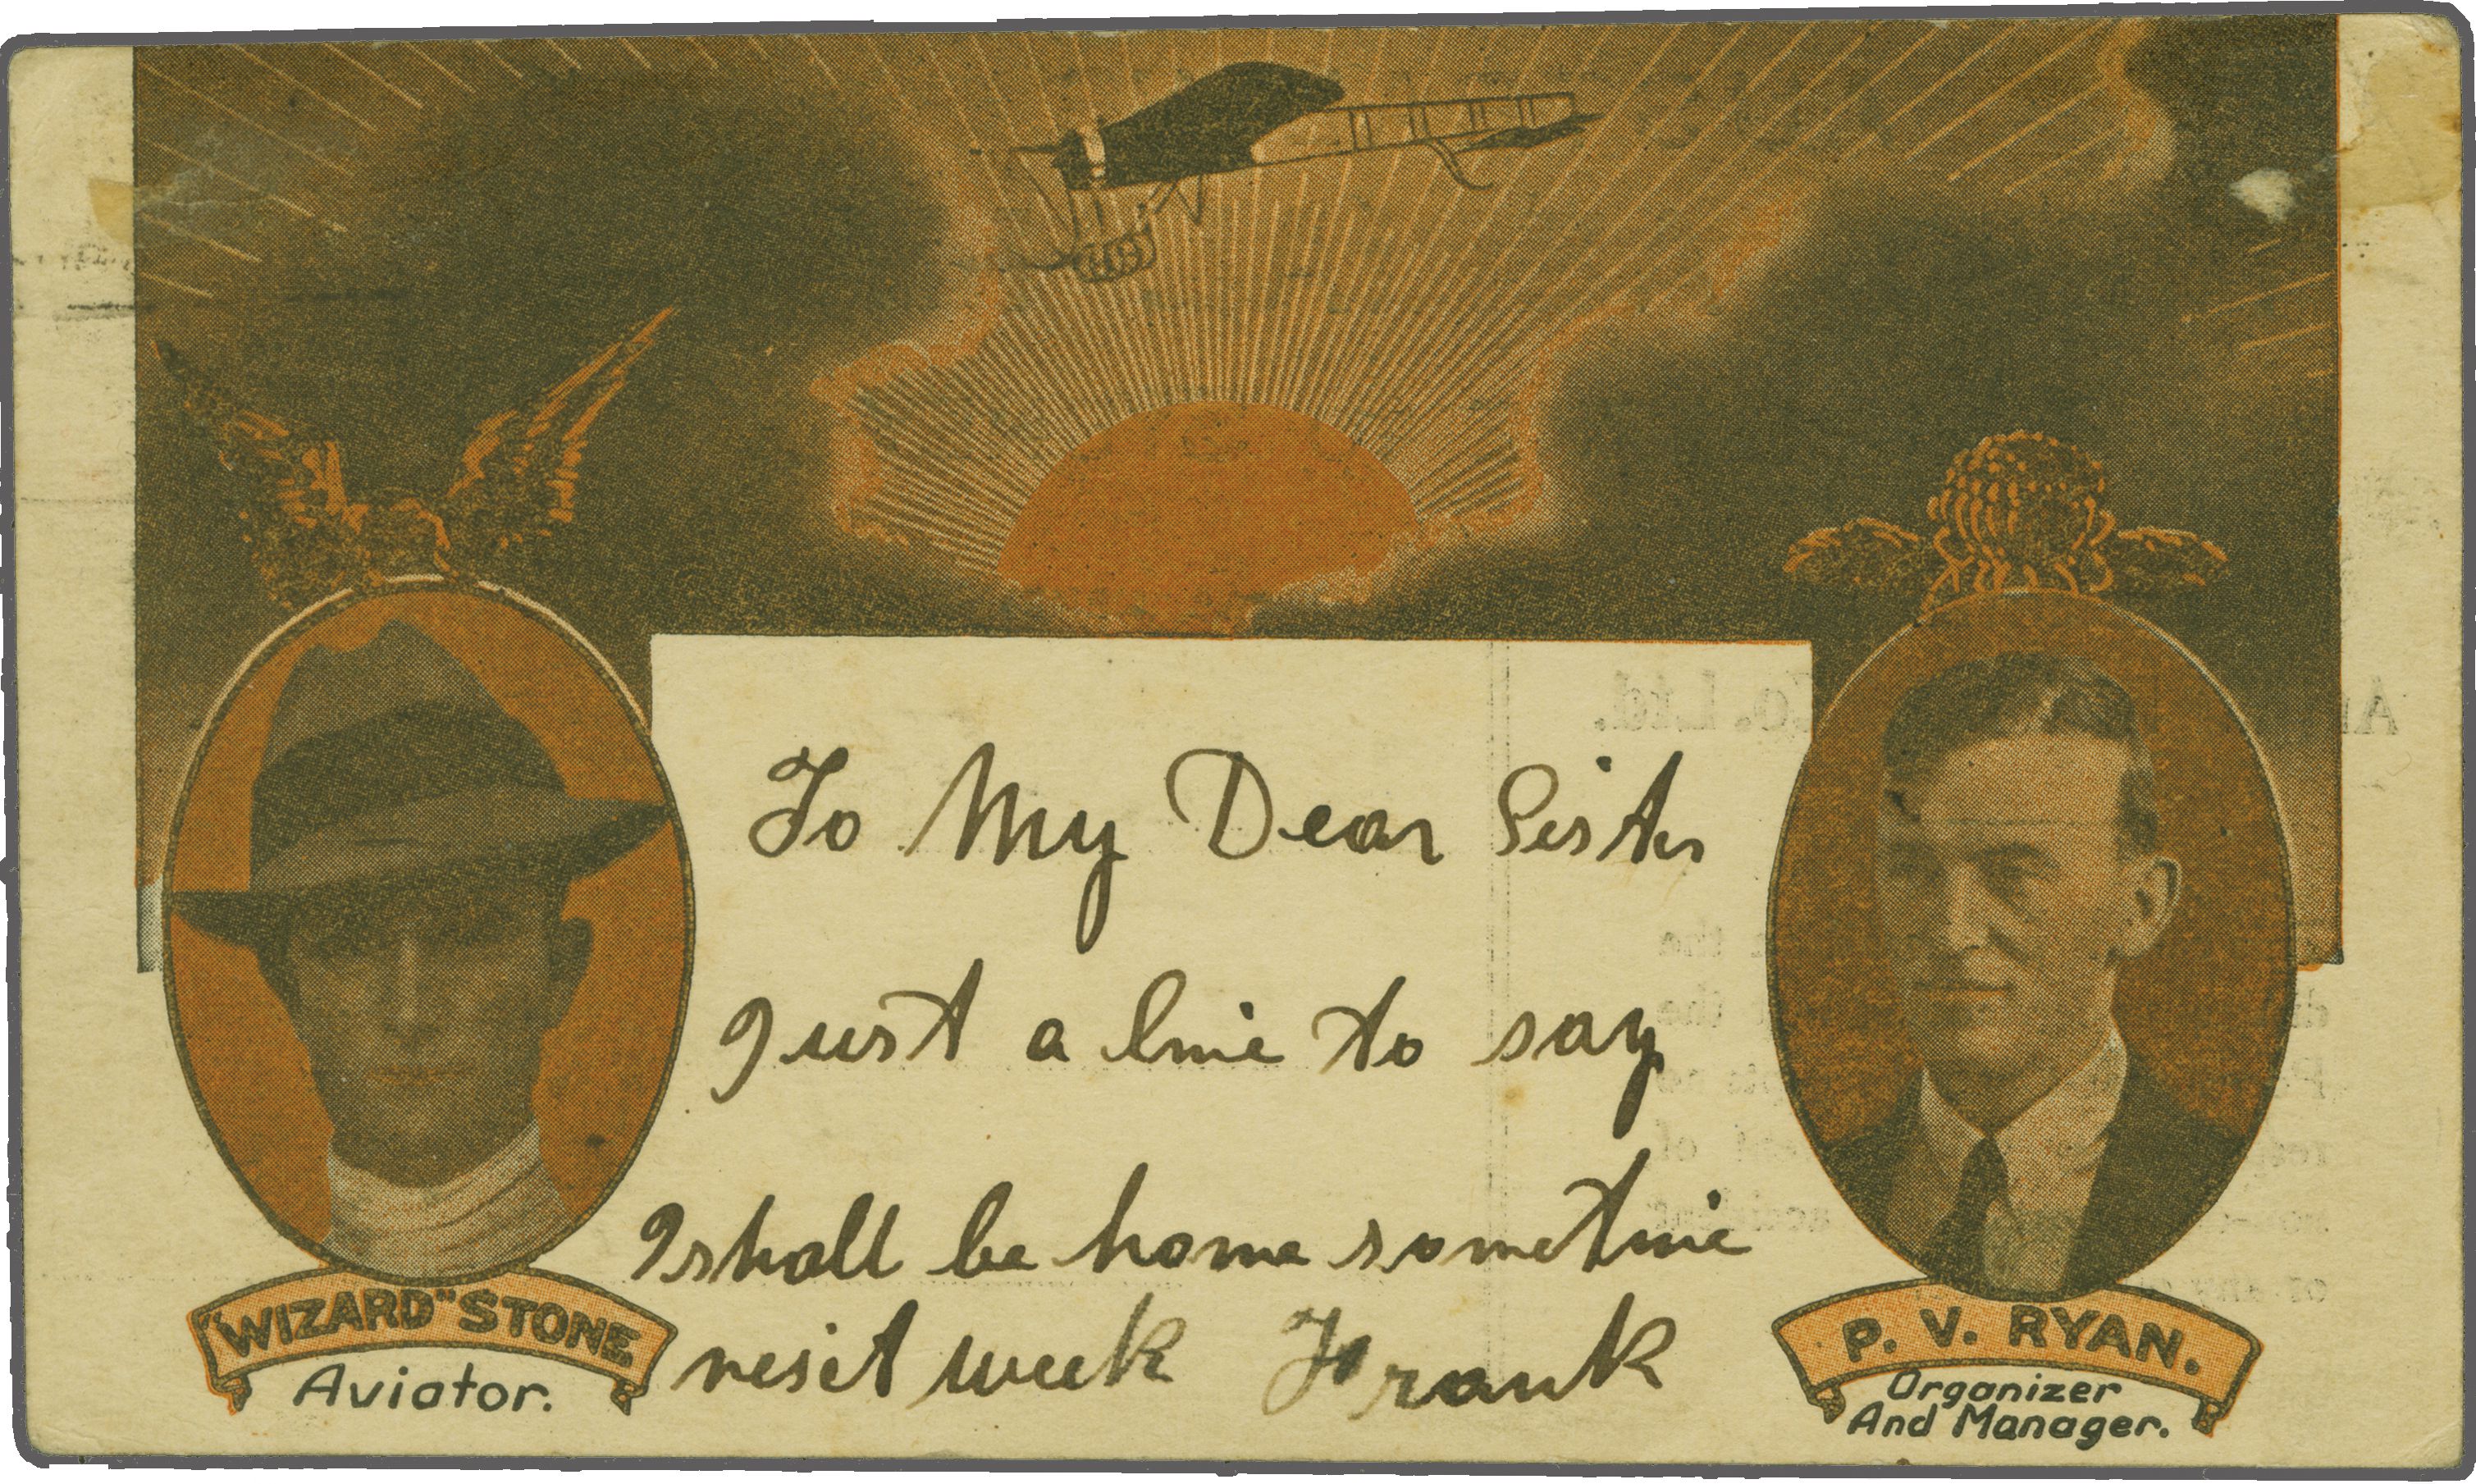 To My Dear Sister
Just a line to say
I shall be home sometime
next week Frank
"WIZARD" STONE
Aviator.
P. V. RYAN.
Organizer
And Manager.